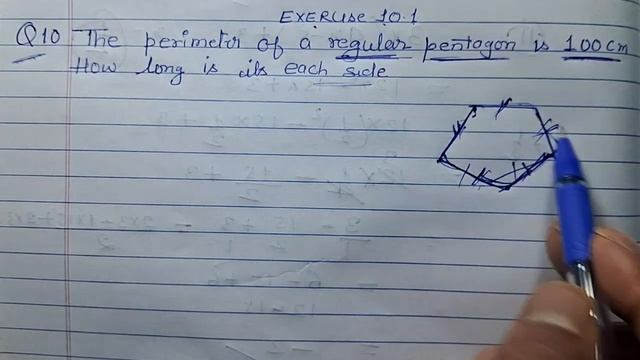 EXERCISE 10.1
Q10 The perimeter of a regular pentagon is 100cm
How long is its each side